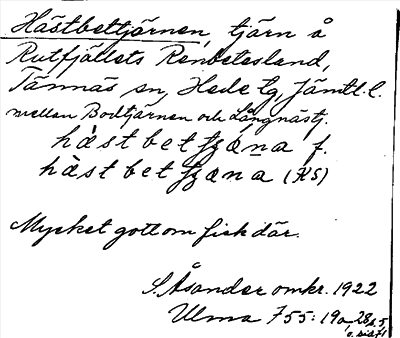 Hästbettjärnen, tjärn å
Rutfjällets Renbetesland,
Tännäs sn, Hede tg, Jämtl. l.
mellan Bodtjärnen och Långnästj.
hàstbettjæna f.
hàstbettjæna (KS)
Mycket gott om fisk där.
S. Åsander omkr. 1922
Ulma 755: 19a, 28 s. 5,
o. sid 71